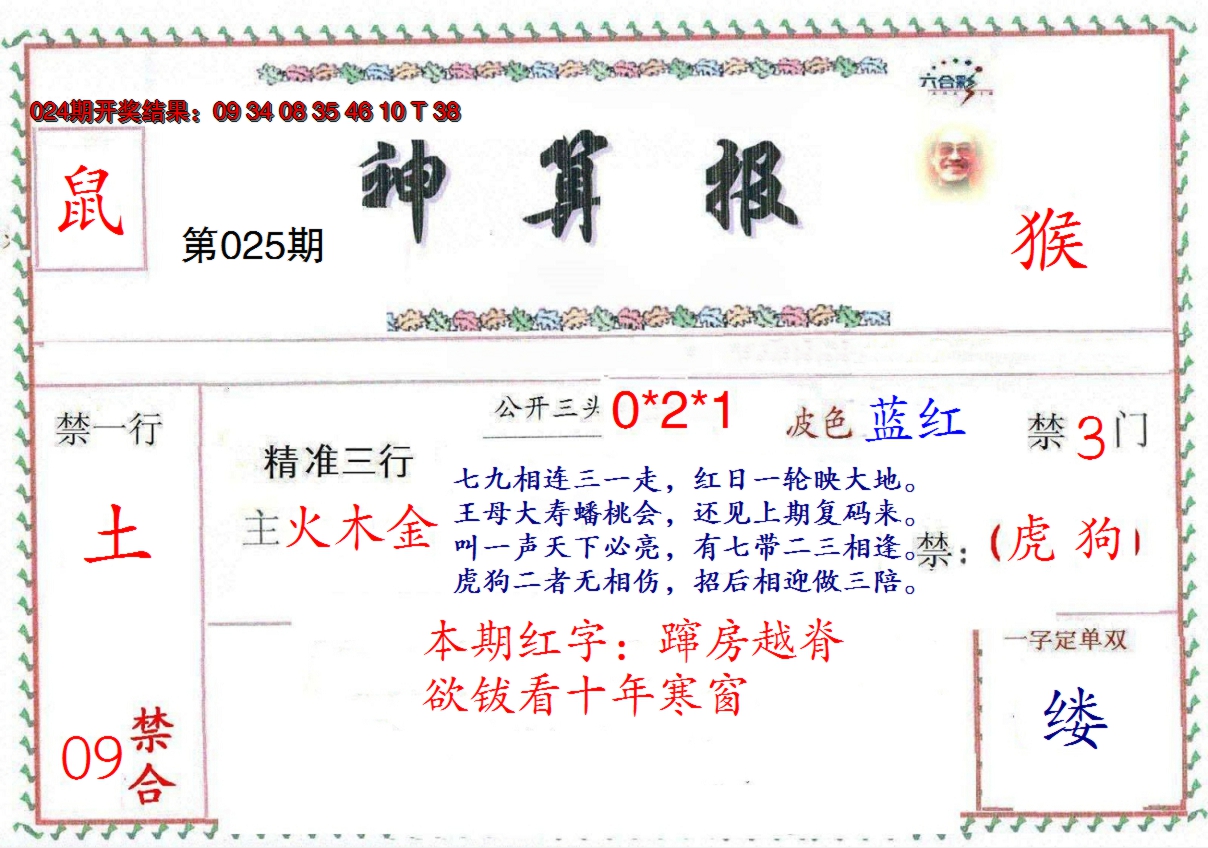 六合彩
024期开奖结果：09 34 08 35 46 10 T 38
鼠
第025期
神算报
猴
禁一行
土
09
禁合
精准三行
主火木金
公开三头 0*2*1
波色 蓝红
禁3门
七九相连三一走，红日一轮映大地。
王母大寿蟠桃会，还见上期复码来。
叫一声天下必亮，有七带二三相逢。
虎狗二者无相伤，招后相迎做三陪。
禁：（虎 狗）
本期红字：蹿房越脊
欲钹看十年寒窗
一字定单双
缕